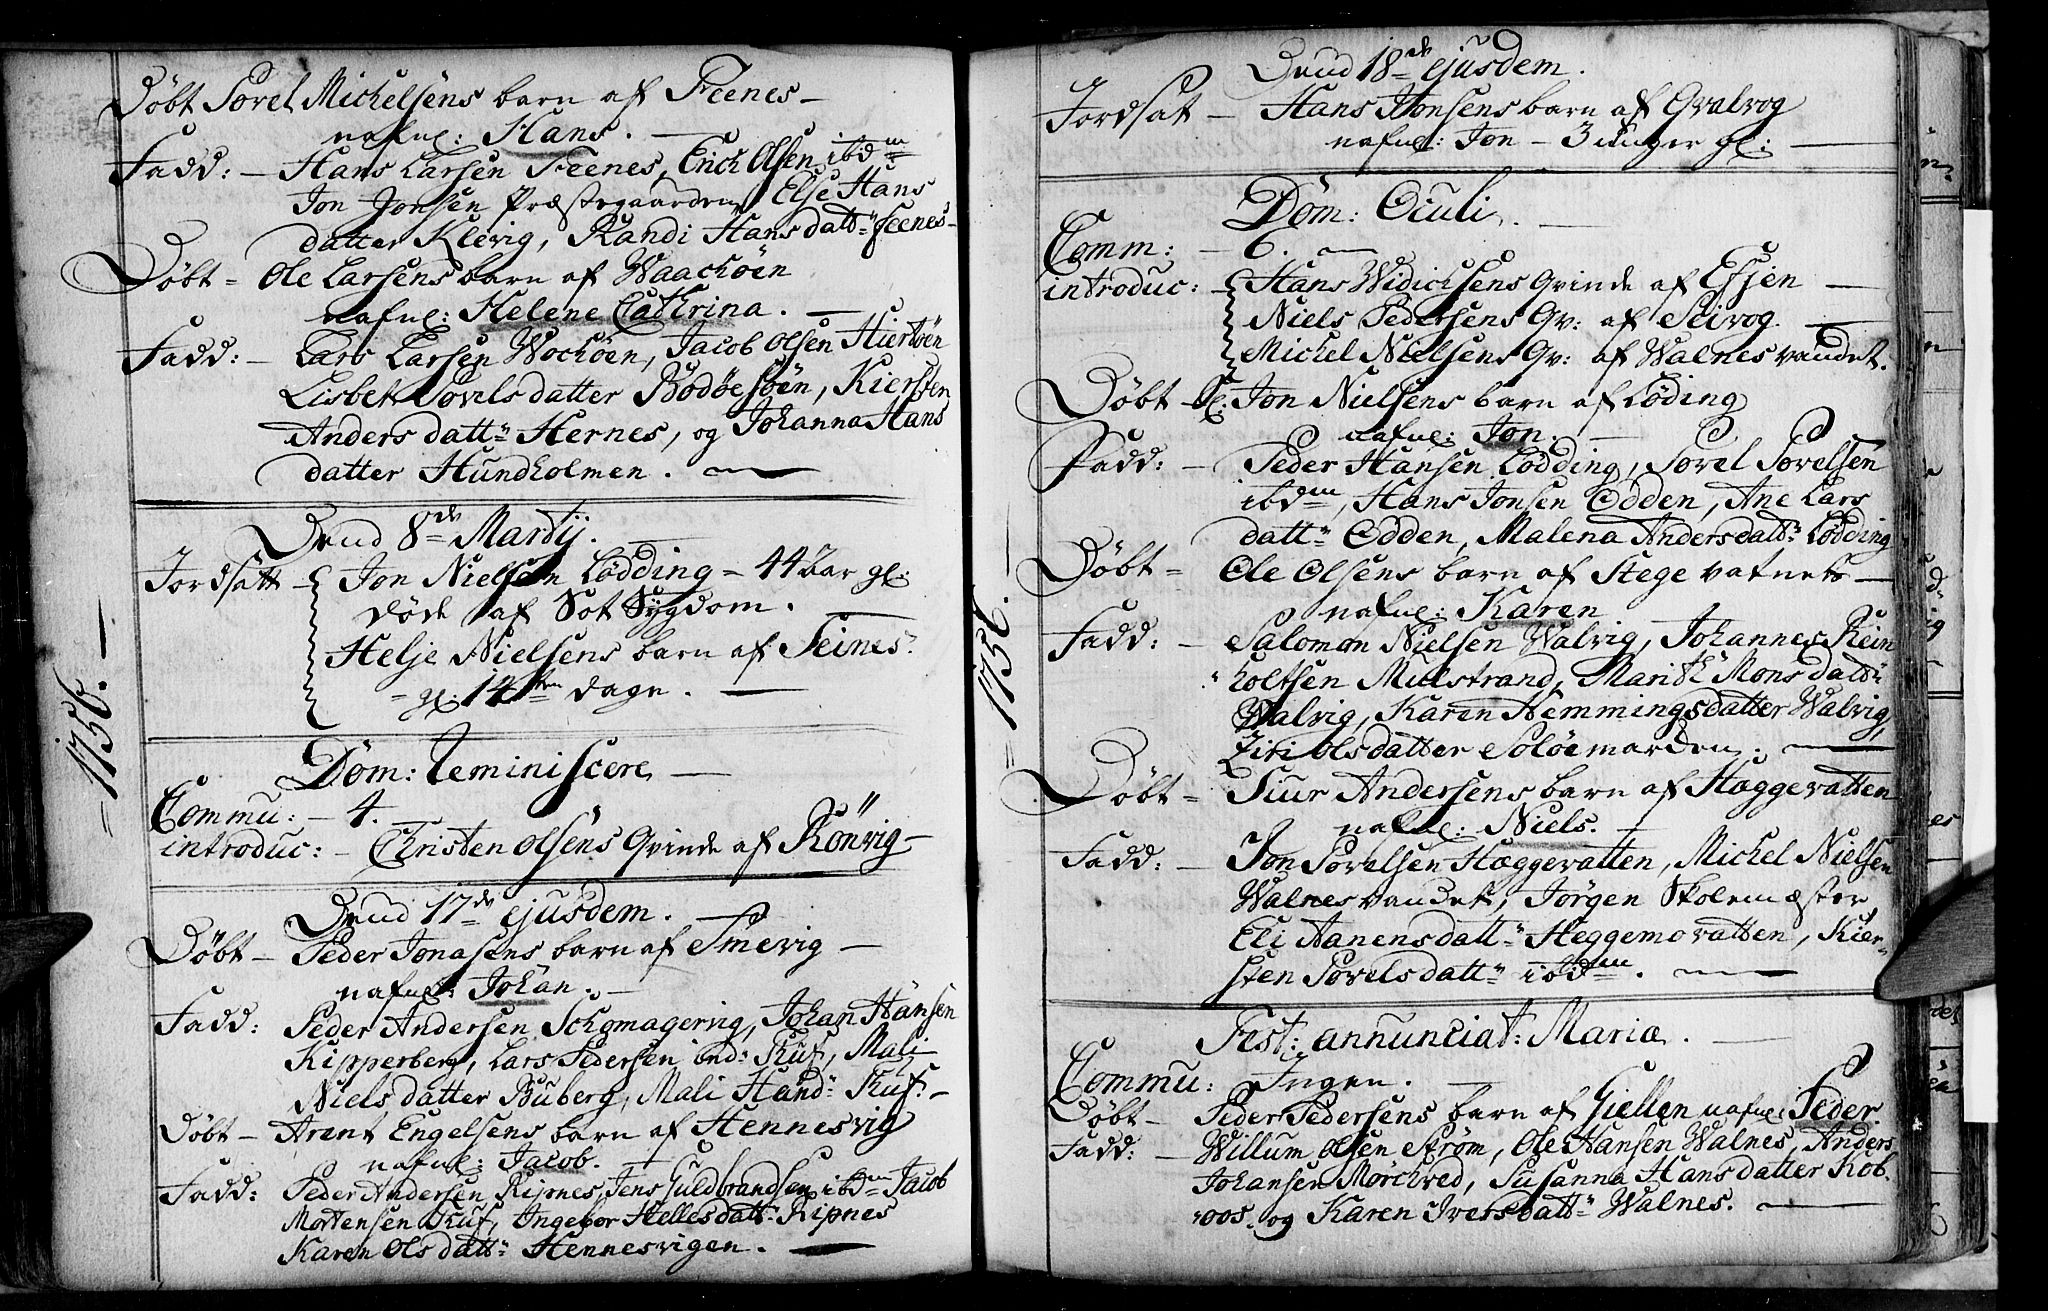 Døbt Povel Michelsens barn af Feenes
nafnl: Hans.
Fadd: Hans Larsen Feenes, Erich Olsen ibdm
Jon Jonsen Præstegaarden, Else Hans
datter Klevig, Randi Hansdattr Feenes
Døbt = Ole Larsens barn af Waachøen
nafnl: Helene Cathrina.
Fadd: Lars Larsen Wochøen, Jacob Olsen Hiertøen
Lisbet Povelsdatter Bodøesøen, Kiersten
Andersdattr Hernes, og Johanna Hans
datter Hundholmen.
Dend 8de Martij.
Jordsatt Jon Nielsen Lødding = 44 aar gl:
døde af Sot Sygdom.
Helje Nielsens barn af Seines
= gl: 14ten dage.
1756.
Dom: Reminiscere
Commu: - 4.
introduc: - Christen Olsens Qvinde af Rønvig
Dend 17de ejusdem.
Døbt - Peder Jonasens barn af Smevig
nafnl: Johan.
Fadd: Peder Andersen Schomagervig, Johan Hansen
Kipperberg, Lars Pedersen ind: Kuf, Mali
Nielsdatter Buberg, Mali Hansd: Kuf.
Døbt - Arent Engelsens barn af Hennesvig
nafnl: Jacob.
Fadd: Peder Andersen Ripnes, Jens Guldbrandsen ibdm Jacob
Mortensen Kuf, Ingebor Hellesdatt: Ripnes
Karen Olsdattr Hennesvigen.
Dend 18de ejusdem.
Jordsat - Hans Jonsens barn af Qvalvog
nafnl: Jon - 3 uuger gl:
Dom: Oculi.
Comm: - 6.
introduc: - Hans Widichsens Qvinde af Essjen
Niels Pedersens Qv: af Seivog.
Michel Nielsens Qv: af Walnesvandet.
Døbt Sl. Jon Nielsens barn af Løding
nafnl: Jon.
Fadd: - Peder Hansen Lødding, Povel Povelsen
ibdm, Hans Jonsen Odden, Ane Lars
dattr Odden, Malena Andersdattr Lødding
Døbt = Ole Olsens barn af Stegevatnet
nafnl: Karen
Fadd: - Salomon Nielsen Walvig, Johannes Rein
holtsen Mulstrand, Marith Monsdattr
Walvig, Karen Hemmingsdatter Walvig,
Ziri Olsdatter Soløemarden.
1756.
Døbt = Siur Andersens barn af Hæggevatten
nafnl: Niels.
Fadd: - Jon Povelsen Hæggevatten, Michel Nielsen
Walnesvandet, Jørgen Skolemæster
Eli Aanensdattr Heggemovatten, Kier-
sten Povelsdattr ibdm.
Fest: annunciat: Mariæ.
Commu: Ingen.
Døbt - Peder Pedersens barn af Giellen nafnl: Peder
Fadd: - Willum Olsen Strøm, Ole Hansen Walnes, Anders
Johansen Mørchved, Susanna Hansdatter Kob
roos, og Karen Iversdattr Walnes.